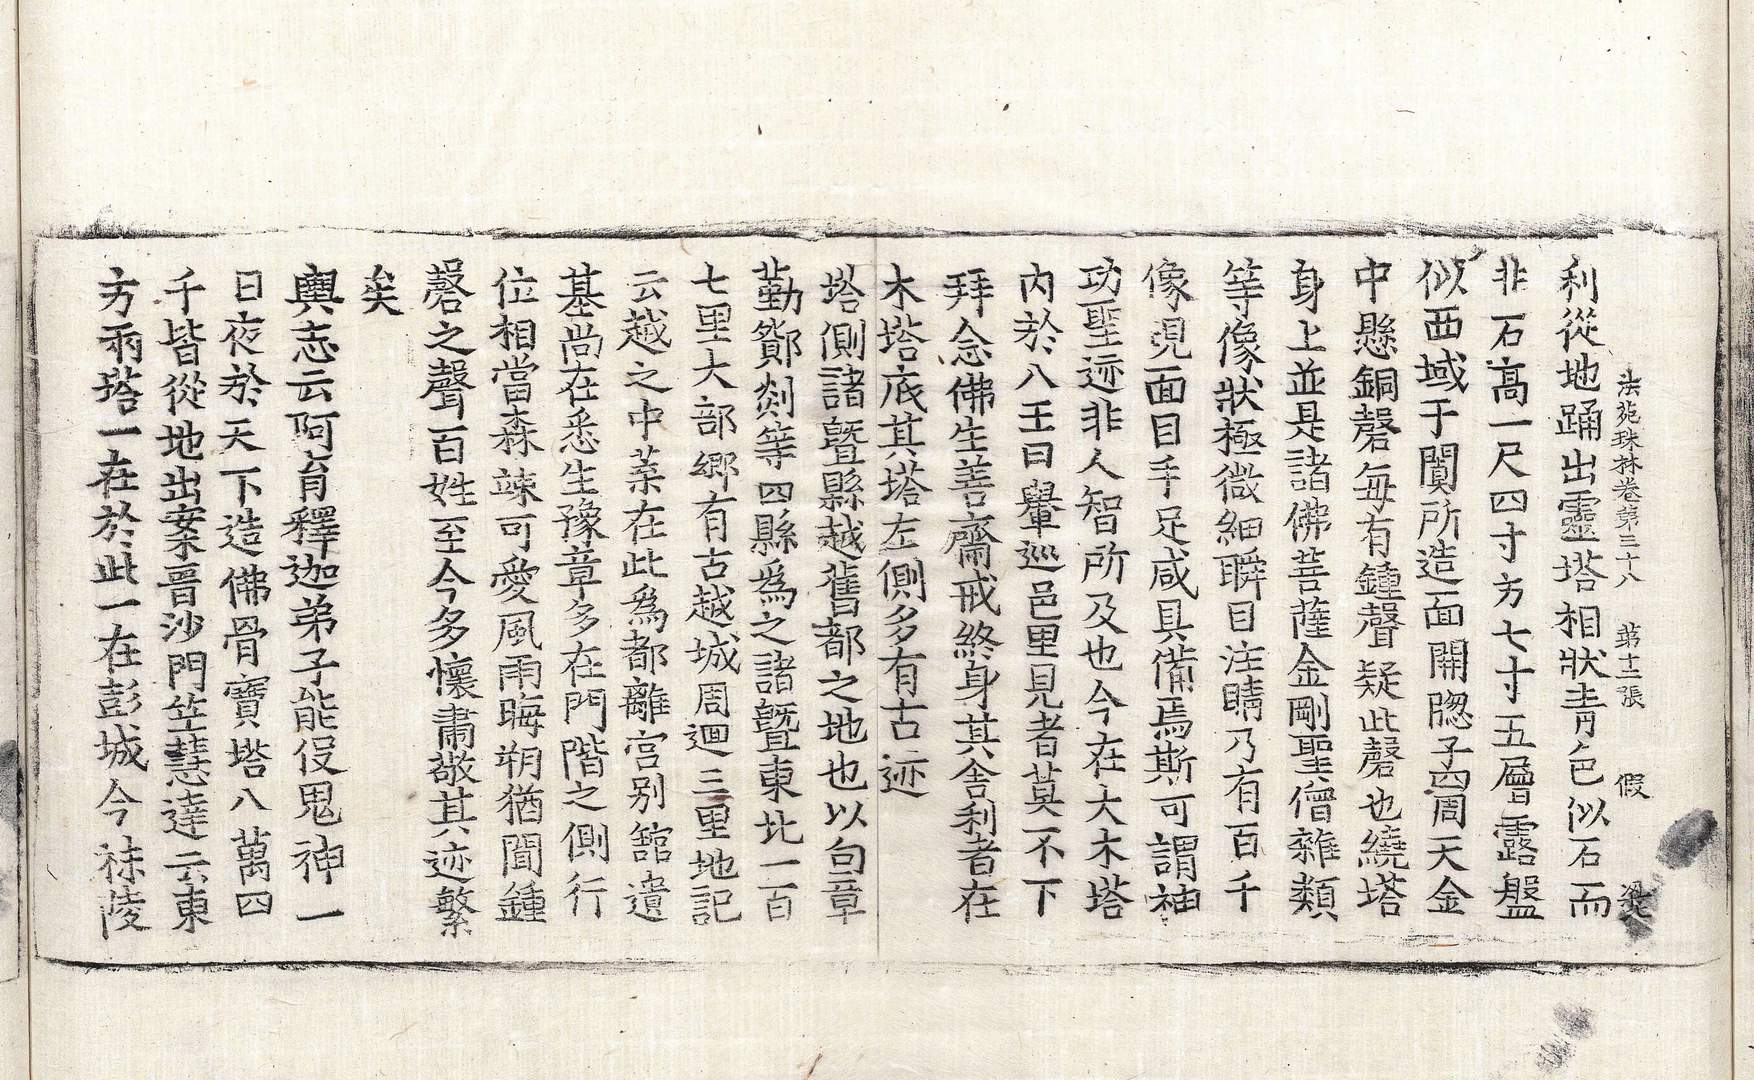 法苑珠林卷第三十八 第十二張 假
利從地踊出靈塔相狀青色似石而
非石高一尺四寸方七寸五層露盤
似西域于闐所造面開牎子四周天金
中懸銅磬每有鐘聲疑此磬也繞塔
身上並是諸佛菩薩金剛聖僧雜類
等像狀極微細瞬目注睛乃有百千
像現面目手足咸具備焉斯可謂神
功聖迹非人智所及也今在大木塔
內於八王日轝巡邑里見者莫不下
拜念佛生善齋戒終身其舍利者在
木塔底其塔左側多有古迹
塔側諸曁縣越舊都之地也以句章
勤鄮剡等四縣爲之諸曁東北一百
七里大部鄉有古越城周迴三里地記
云越之中葉在此爲都離宮別舘遺
基尚在悉生豫章多在門階之側行
位相當森竦可愛風雨晦朔猶聞鍾
磬之聲百姓至今多懷肅敬其迹繁
矣
輿志云阿育釋迦弟子能伇鬼神一
日夜於天下造佛骨寶塔八萬四
千皆從地出案晉沙門竺慧達云東
方兩塔一在於此一在彭城今秣陵